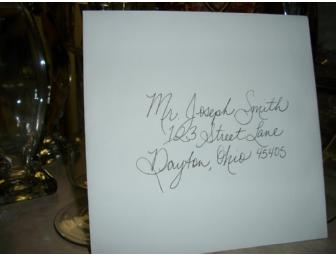 Mr. Joseph Smith
123 Street Lane
Dayton, Ohio 45405